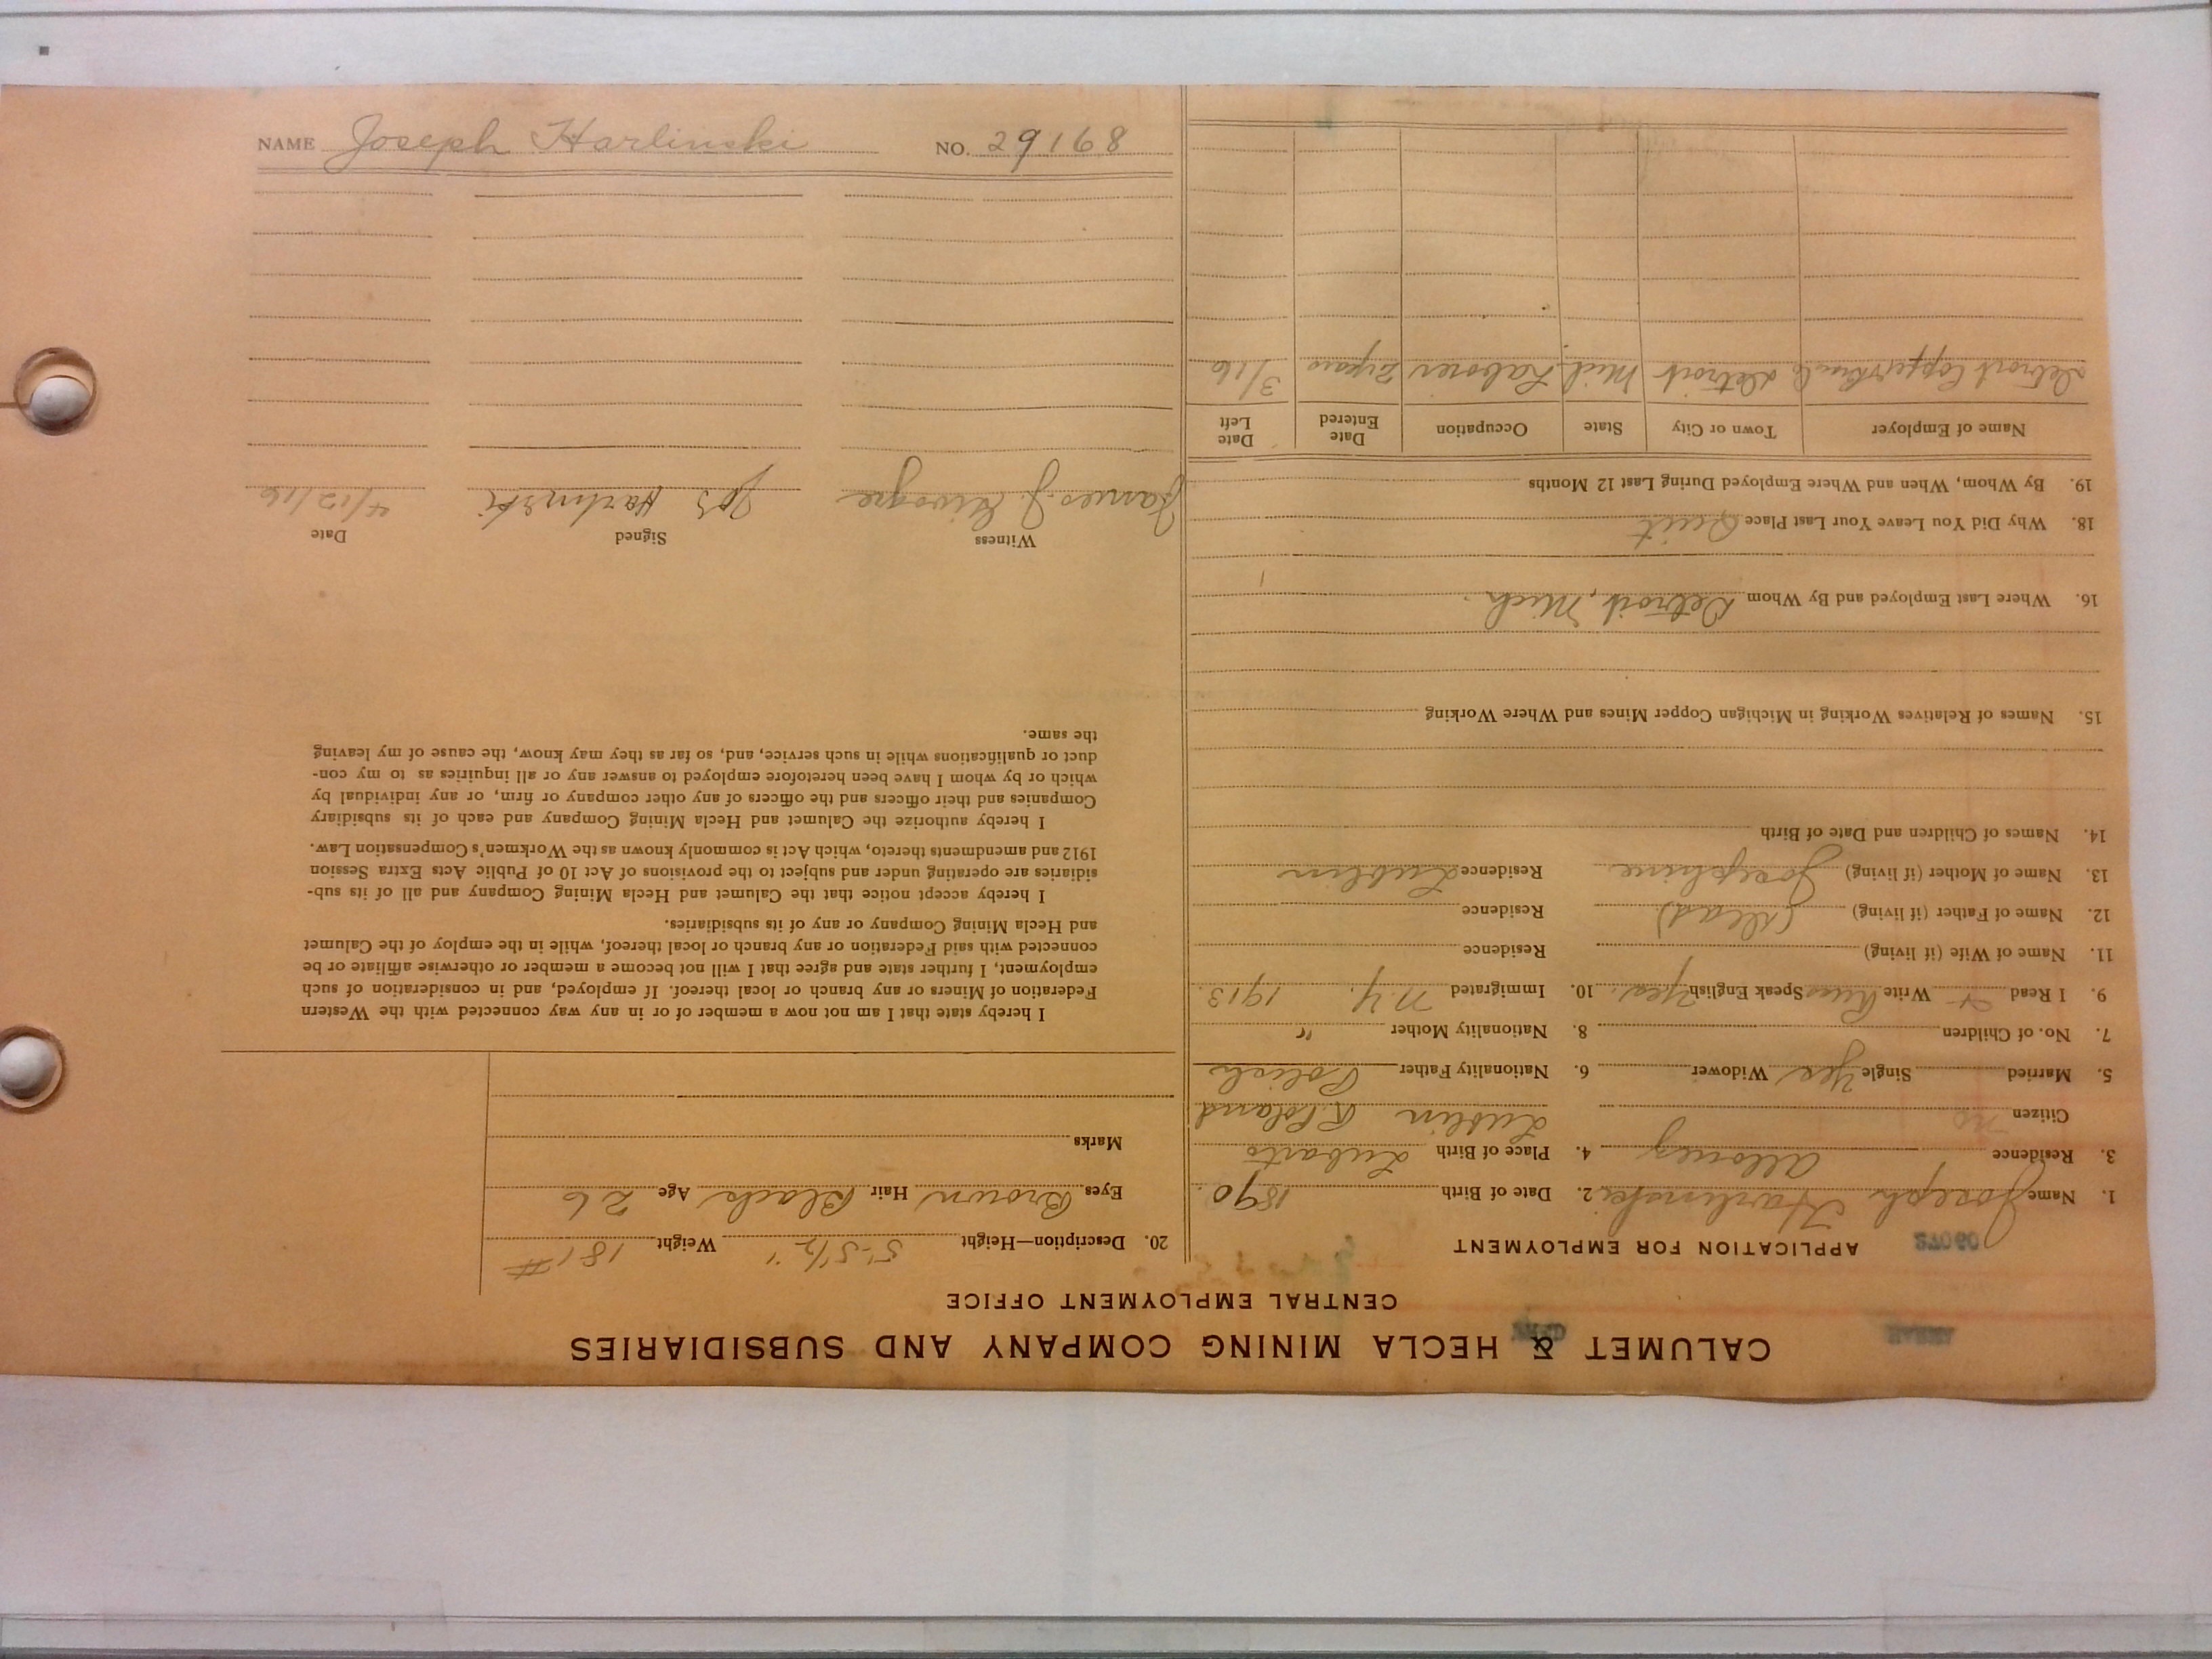 CALUMET & HECLA MINING COMPANY AND SUBSIDIARIES
CENTRAL EMPLOYMENT OFFICE
APPLICATION FOR EMPLOYMENT
1. Name Joseph Harlinski 2. Date of Birth 1890.
3. Residence Allouez 4. Place of Birth Lubarto
Citizen no Lublin R. Poland
5. Married Single Yes Widower 6. Nationality Father Polish
7. No. of Children 8. Nationality Mother "
9. I Read Write Russ Speak English Yes. 10. Immigrated N.Y. 1913.
11. Name of Wife (if living) Residence
12. Name of Father (if living) (Dead) Residence
13. Name of Mother (if living) Josephine Residence Lublin
14. Names of Children and Date of Birth
15. Names of Relatives Working in Michigan Copper Mines and Where Working
16. Where Last Employed and By Whom Detroit, Mich.
18. Why Did You Leave Your Last Place Quit
19. By Whom, When and Where Employed During Last 12 Months
Name of Employer Town or City State Occupation Date Entered Date Left
Detroit Copper Detroit Mich Laborer 2 years 3/16
20. Description—Height 5'-5 1/2" Weight 181 #
Eyes Brown Hair Black Age 26
Marks
I hereby state that I am not now a member of or in any way connected with the Western
Federation of Miners or any branch or local thereof. If employed, and in consideration of such
employment, I further state and agree that I will not become a member or otherwise affiliate or be
connected with said Federation or any branch or local thereof, while in the employ of the Calumet
and Hecla Mining Company or any of its subsidiaries.
I hereby accept notice that the Calumet and Hecla Mining Company and all of its sub-
sidiaries are operating under and subject to the provisions of Act 10 of Public Acts Extra Session
1912 and amendments thereto, which Act is commonly known as the Workmen's Compensation Law.
I hereby authorize the Calumet and Hecla Mining Company and each of its subsidiary
Companies and their officers and the officers of any other company or firm, or any individual by
which or by whom I have been heretofore employed to answer any or all inquiries as to my con-
duct or qualifications while in such service, and, so far as they may know, the cause of my leaving
the same.
Date Signed Witness
4/12/16 Jos Harlinski James J.
NAME Joseph Harlinski NO. 29168